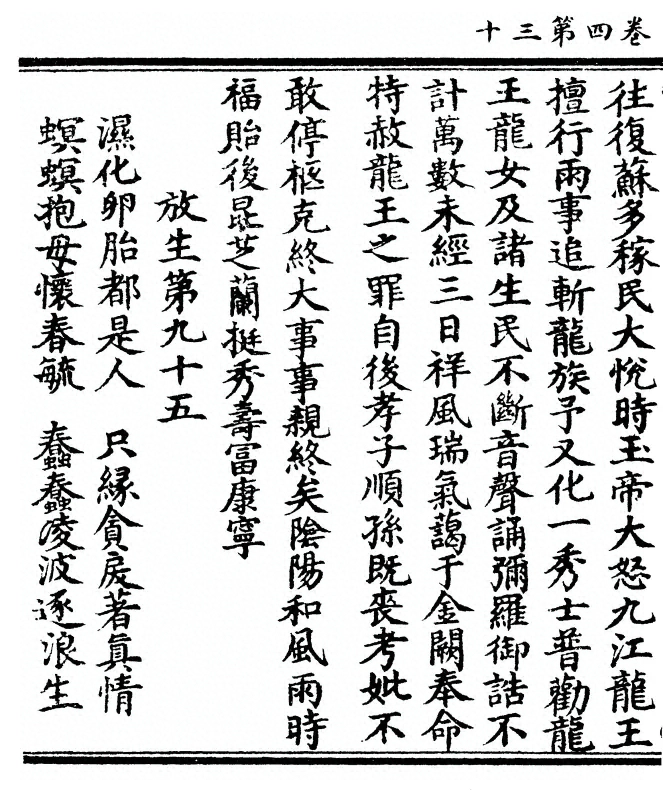 十三第四卷
往復蘇多稼民大悅時玉帝大怒九江龍王
擅行雨事追斬龍族予又化一秀士普勸龍
王龍女及諸生民不斷音聲誦彌羅御誥不
計萬數未經三日祥風瑞氣藹于金闕奉命
特赦龍王之罪自後孝子順孫既喪考妣不
敢停柩克終大事事親終矣陰陽和風雨時
福貽後昆芝蘭挺秀壽冨康寧
放生第九十五
濕化卵胎都是人 只緣貪戾著真情
螟螟抱母懷春毓 蠢蠢凌波逐浪生